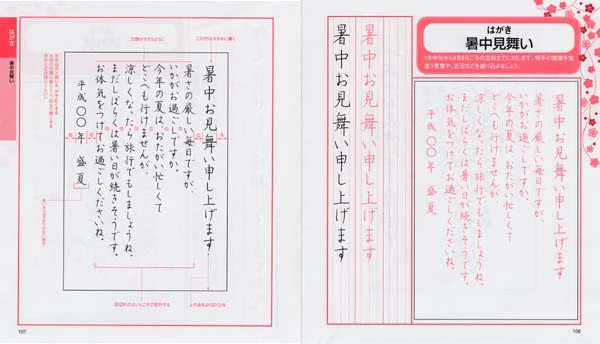 はがき
暑中見舞い
7月中旬から8月8日ごろの立秋までに出します。相手の健康を気
遣う言葉や、近況などを綴り込みましょう。
暑中お見舞い申し上げます
暑さの厳しい毎日ですが、
いかがお過ごしですか。
今年の夏は、おたがい忙しくて
どこへも行けませんが、
涼しくなったら旅行でもしましょうね。
まだしばらくは暑い日が続きそうです。
お体気をつけてお過ごしくださいね。
平成〇〇年 盛夏
暑中お見舞い申し上げます
暑中お見舞い申し上げます
106
はがき
暑中見舞い
この行は大きめに書く
文頭がそろうように
暑中お見舞い申し上げます
暑さの厳しい毎日ですが、
いかがお過ごしですか。
今年の夏は、おたがい忙しくて
どこへも行けませんが、
涼しくなったら旅行でもしましょうね。
まだしばらくは暑い日が続きそうです。
お体気をつけてお過ごしくださいね。
平成〇〇年 盛夏
区切りのよいところで改行する
上の余白より広くとる
107